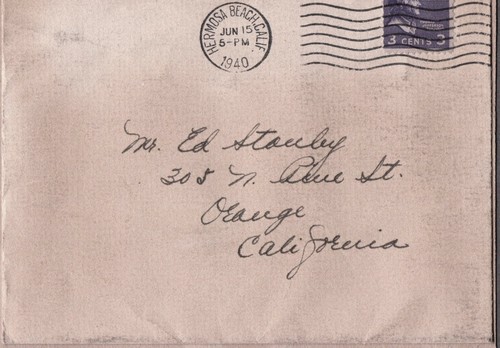 HERMOSA BEACH, CALIF.
JUN 15
5-PM
1940
3 CENTS 3
Mr. Ed Stanley
308 N. St.
Orange
California